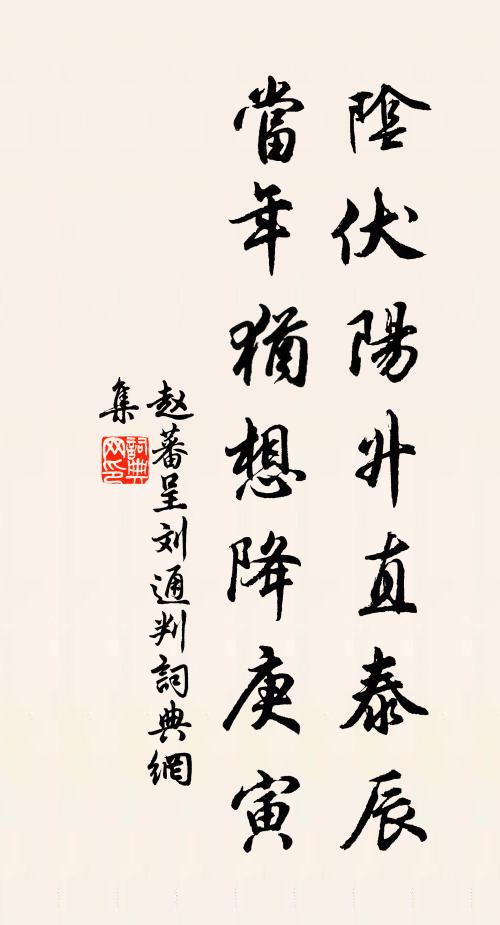 陰伏陽升直泰辰
當年猶想降庚寅
赵蕃呈刘通判詞典網
集
詞典网印